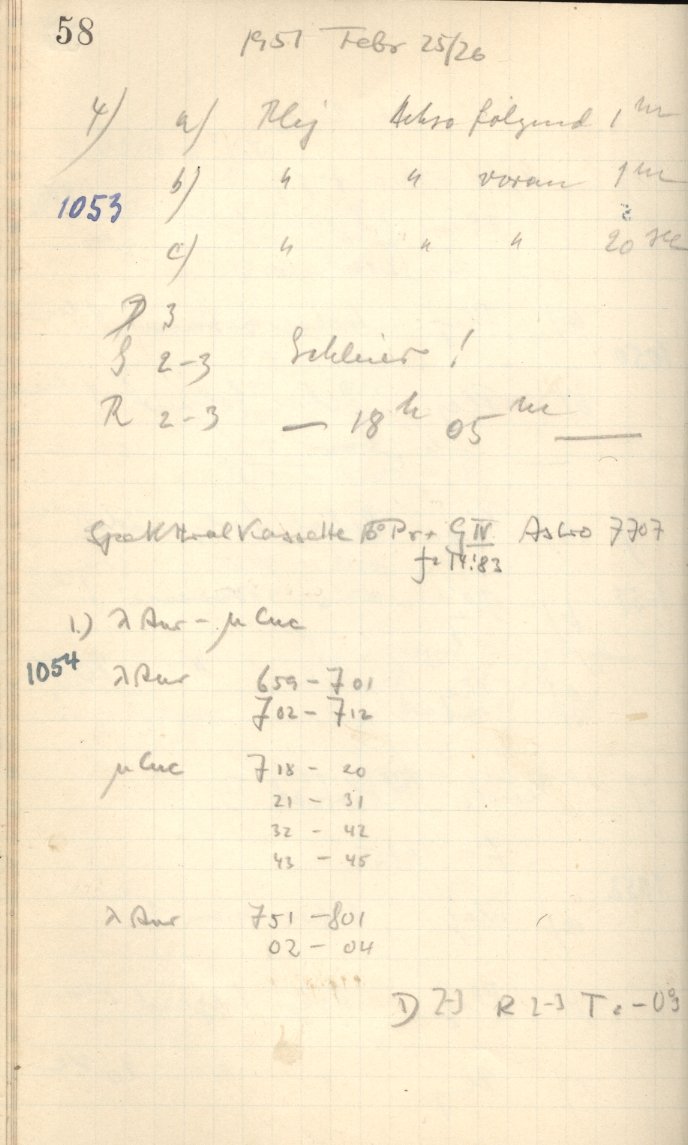 58
1951 Febr 25/26
4) a) Plej Astro folgend 1 m
b) " " voran 1 m
1053
c) " " " 20 sec
D 3
S 2-3 Schleier!
R 2-3 — 18 h 05 m —
Spektralkassette Pr + G IV Astro 7707
1.) λ Aur - μ Cnc
1054
λ Aur 659 - 701
702 - 712
μ Cnc 718 - 20
21 - 31
32 - 42
43 - 45
λ Aur 751 - 801
02 - 04
D 2-3 R 2-3 T = -0°3